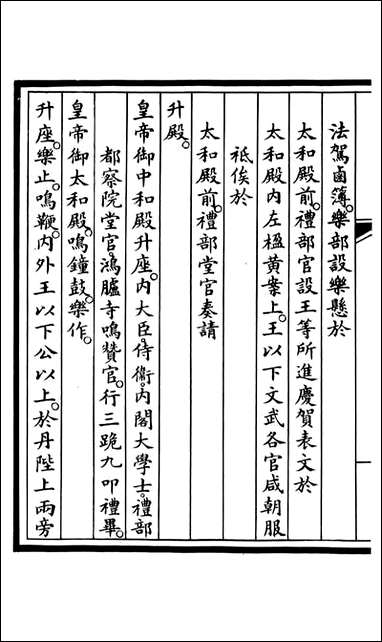 法駕鹵簿。樂部設樂懸於
太和殿前。禮部官設王等所進慶賀表文於
太和殿内左楹黄案上。王以下文武各官咸朝服
祗俟於
太和殿前。禮部堂官奏請
升殿。
皇帝御中和殿升座。内大臣。侍衞。内閣大學士。禮部
都察院堂官。鴻臚寺鳴贊官。行三跪九叩禮畢。
皇帝御太和殿。鳴鐘鼓。樂作。
升座。樂止。鳴鞭。内外王以下公以上。於丹陛上兩旁